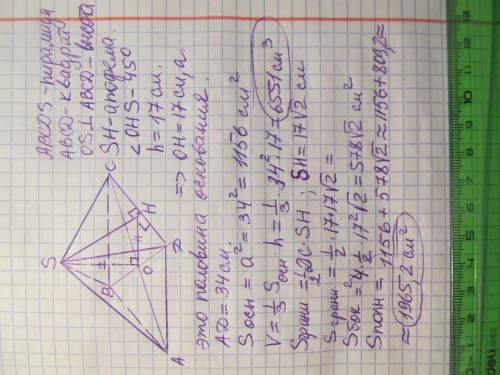 ABCDS - пирамида
ABCD - квадрат
OS ⊥ ABCD - высота
SH - апофема.
< OHS - 45°
h = 17 см.
=> OH = 17 см, а
это половина основания.
AD = 34 см.
Sосн = a² = 34² = 1156 см²
V = 1/3 Sосн · h = 1/3 · 34² · 17 ≈ 6551 см³
Sграни = 1/2 DC · SH ; SH = 17√2 см
Sграни = 1/2 · 17 · 17√2 =
Sбок = 4 · 1/2 · 17² √2 = 578√2 см²
Sполн = 1156 + 578√2 ≈ 1156 + 809,2 ≈
≈ 1965,2 см²
S
A
B
C
D
O
H
0 1 2 3 4 5 6 7 8 9 10 11 12 13